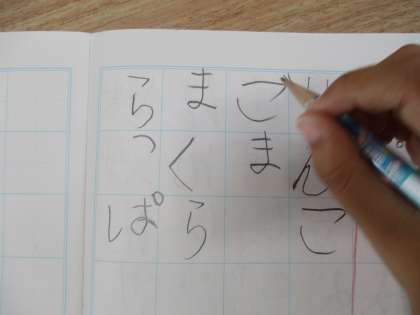 りんご
ごま
まくら
らっぱ